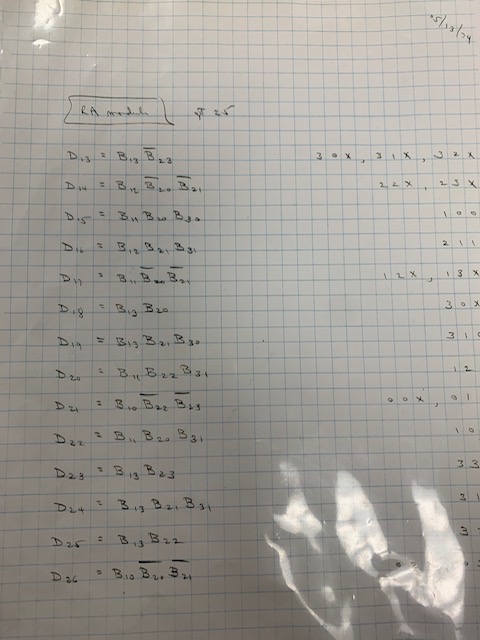 05/13/24
RA module
D13 = B13 B̅23 30X, 31X, 32X
D14 = B12 B̅20 B̅21 22X, 23X
D15 = B11 B20 B30 100
D16 = B12 B21 B31 211
D17 = B11 B̅20 B̅21 12X, 13X
D18 = B13 B20 30X
D19 = B13 B21 B30 310
D20 = B11 B22 B31 12
D21 = B10 B̅22 B̅23 00X, 01
D22 = B11 B20 B31 10
D23 = B13 B23 33
D24 = B13 B21 B31 31
D25 = B13 B22 3
D26 = B10 B̅20 B̅21